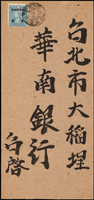 台北市大稻埕
華南銀行
白啓